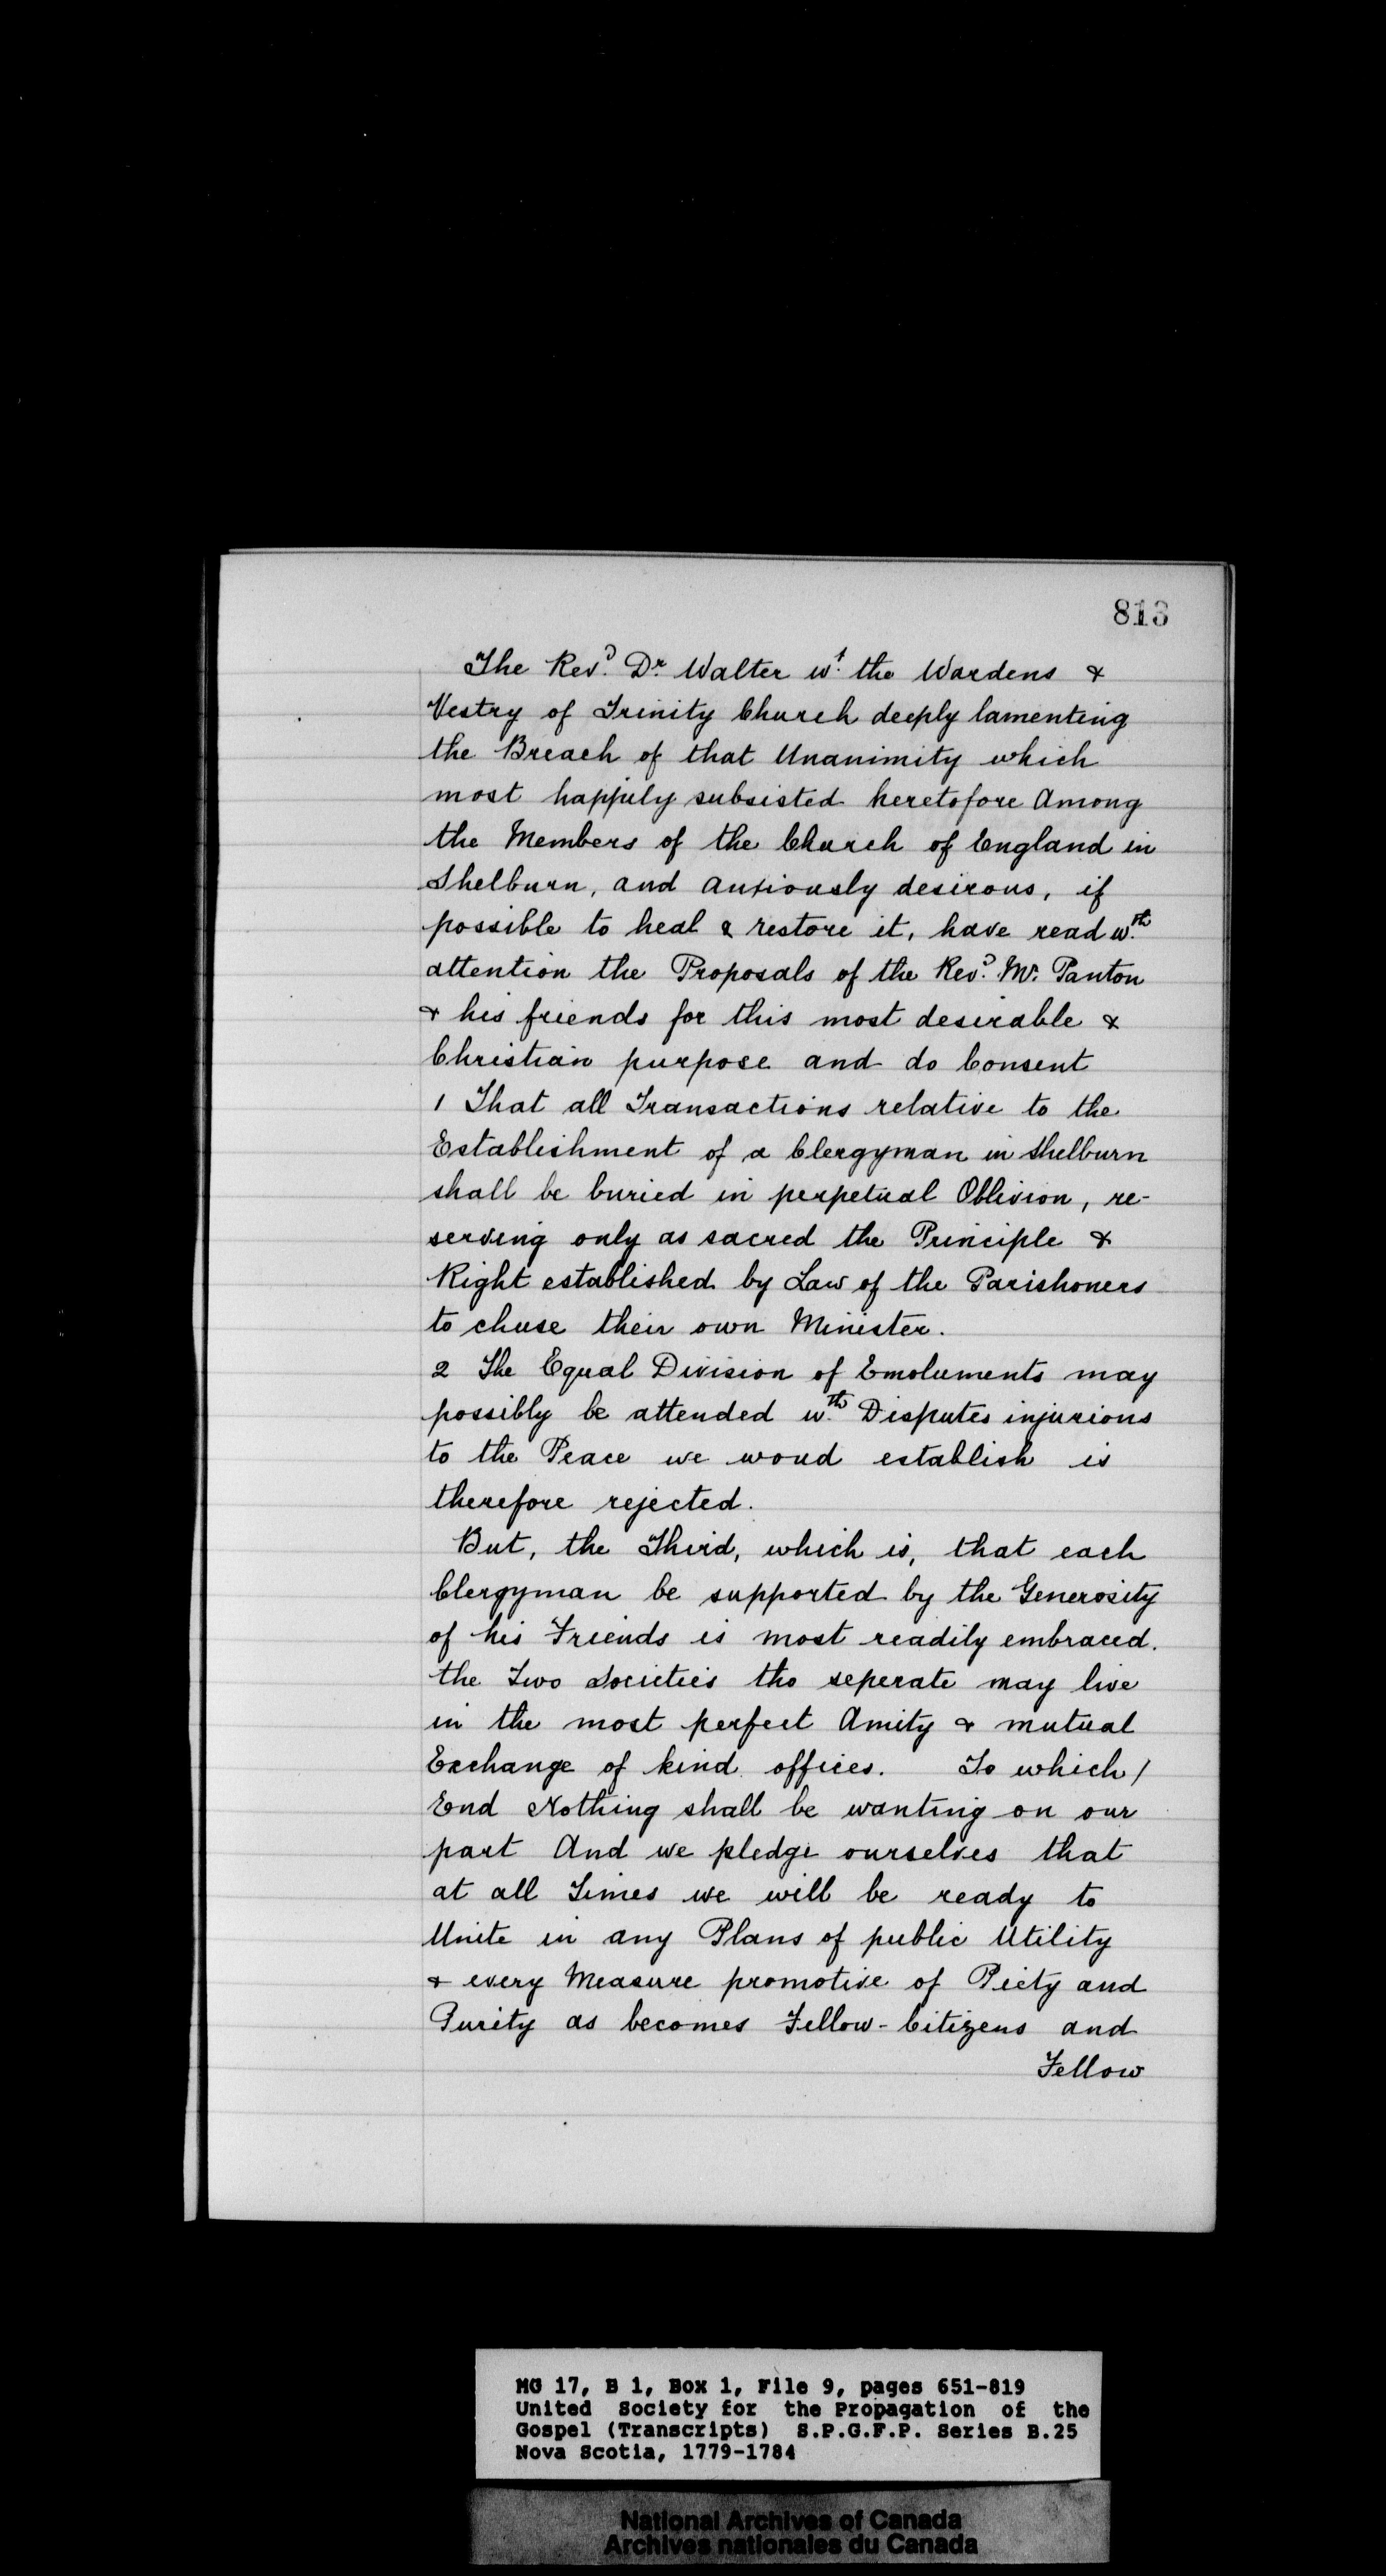 813
The Rev.d Dr Walter w.t the Wardens &
Vestry of Trinity Church deeply lamenting
the Breach of that Unanimity which
most happily subsisted heretofore Among
the Members of the Church of England in
Shelburn, and anxiously desirous, if
possible to heal & restore it, have read w.th
attention the Proposals of the Rev.d Mr. Panton
& his friends for this most desirable &
Christian purpose and do Consent
1 That all Transactions relative to the
Establishment of a Clergyman in Shelburn
shall be buried in perpetual Oblivion, re-
serving only as sacred the Principle &
Right established by Law of the Parishoners
to chuse their own Minister.
2 The Equal Division of Emoluments may
possibly be attended w.th Disputes injurious
to the Peace we woud establish is
therefore rejected.
But, the Third, which is, that each
Clergyman be supported by the Generosity
of his Friends is most readily embraced.
the Two Societies tho seperate may live
in the most perfect Amity & mutual
Exchange of kind offices. To which /
End Nothing shall be wanting on our
part And we pledge ourselves that
at all Times we will be ready to
Unite in any Plans of public Utility
& every Measure promotive of Piety and
Purity as becomes Fellow-Citizens and
Fellow
MG 17, B 1, Box 1, File 9, pages 651-819
United Society for the Propagation of the
Gospel (Transcripts) S.P.G.F.P. Series B.25
Nova Scotia, 1779-1784
National Archives of Canada
Archives nationales du Canada